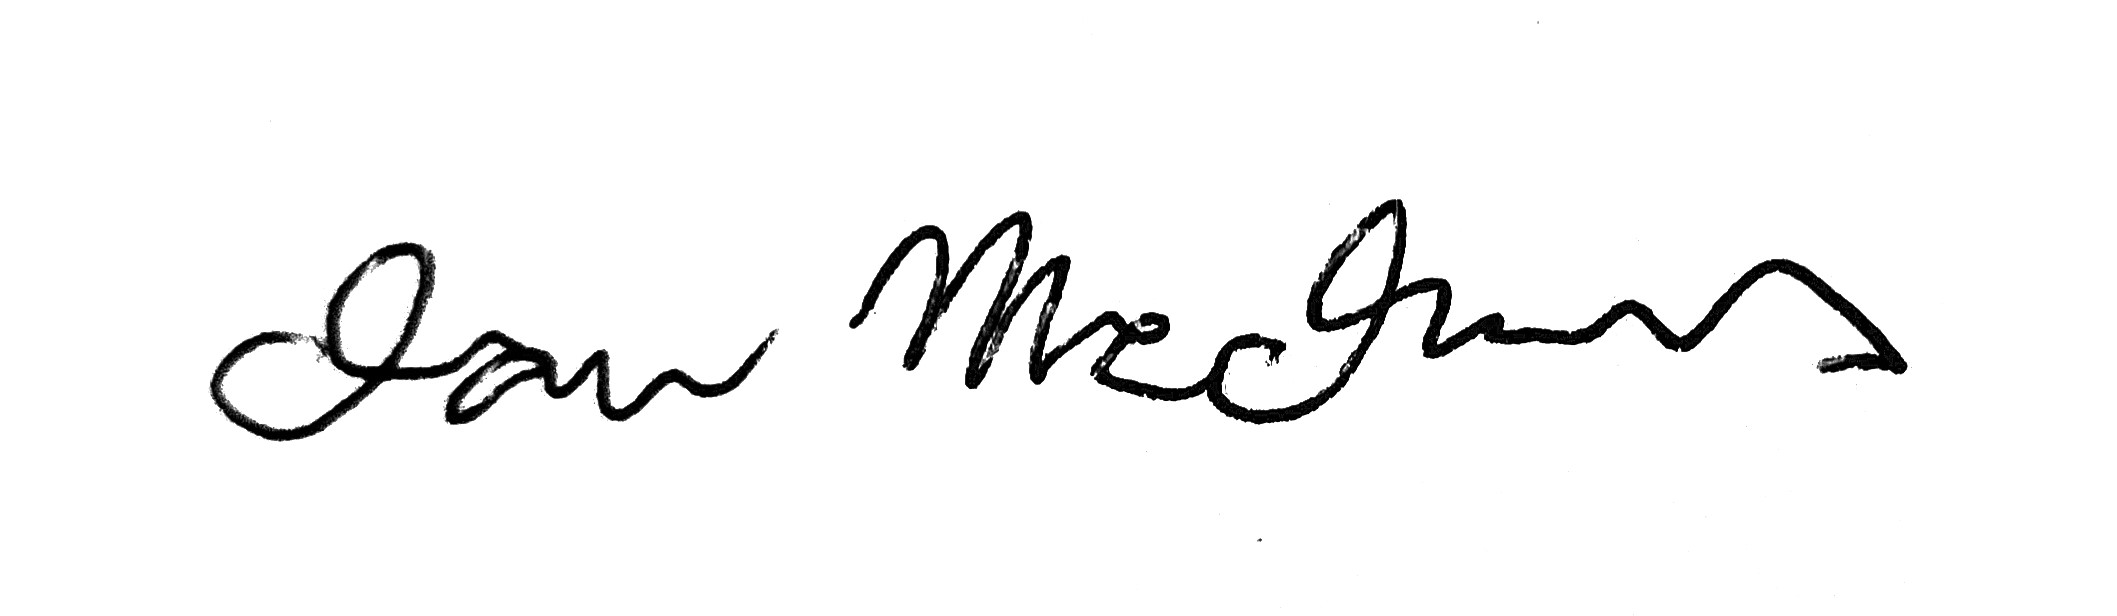 Ian McInnes